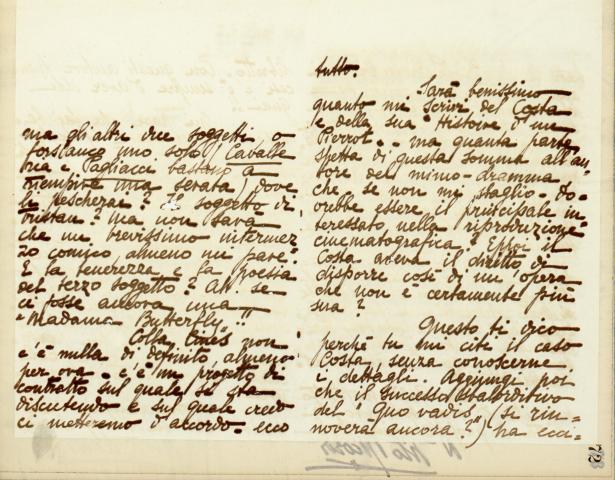 ma gli altri due soggetti o
forse anco uno solo (Cavalle
ria e Pagliacci bastano a
riempire una serata) dove
li pescherai? Il soggetto di
Tristan? ma non sarà
che un brevissimo intermez
zo comico almeno mi pare.
E la tenerezza e la poesia
del terzo soggetto? Ah! se
ci fosse ancora una
"Madama Butterfly"!!
Colla "Cines" non
c'è nulla di definito, almeno
per ora - c'è un progetto di
contratto sul quale si sta
discutendo e sul quale credo
ci metteremo d'accordo - ecco
tutto.
Sarà benissimo
quanto mi scrivi del Costa
e della sua "Histoire d'un
Pierrot" - ma quanta parte
spetta di questa somma all'au
tore del mimo-dramma
che se non mi sbaglio do-
vrebbe essere il principale in
teressato nella riproduzione
cinematografica? E poi il
Costa aveva il diritto di
disporre così di un'opera
che non è certamente più
sua?
Questo ti dico
perchè tu mi citi il caso
Costa, senza conoscerne
i dettagli. Aggiungi poi
che il successo sbalorditivo
del "Quo vadis" (si rin-
noverà ancora?) ha ecci-
72